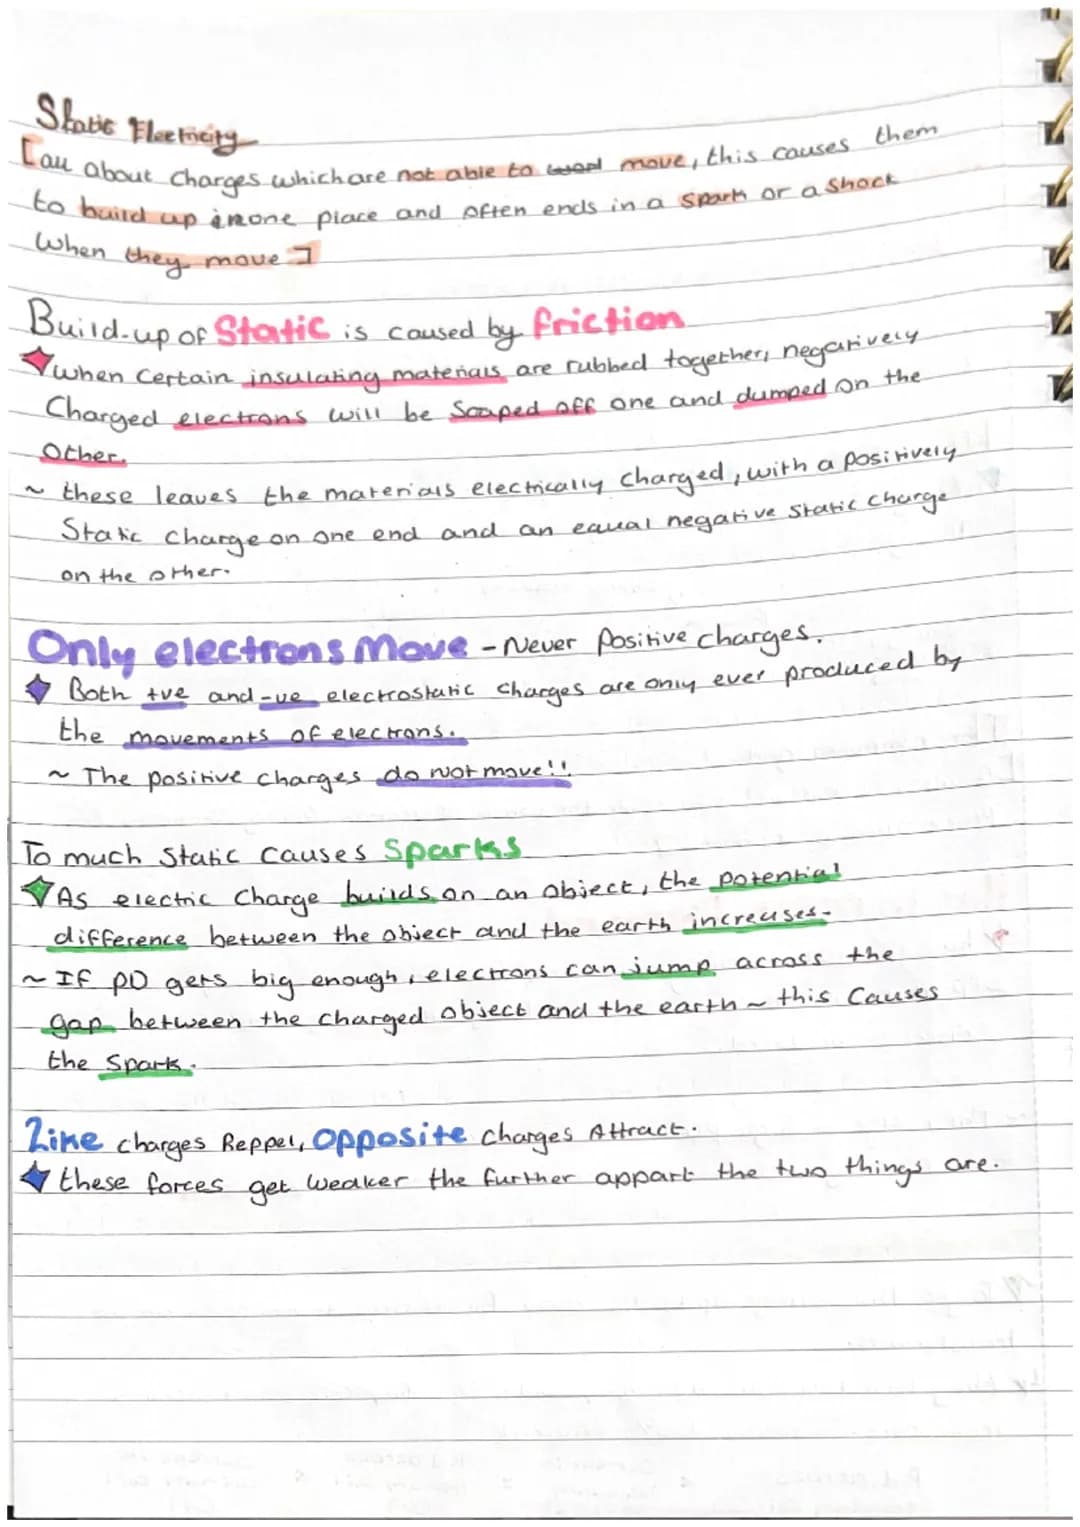 Static Electricity
[all about charges which are not able to move, this causes them
to build up in one place and often ends in a spark or a shock
when they move]
Build-up of Static is caused by friction
when certain insulating materials are rubbed together, negatively
Charged electrons will be Scaped off one and dumped on the
Other.
~ these leaves the materials electrically charged, with a positively
Static charge on one end and an equal negative static charge
on the other.
Only electrons Move - Never Positive charges.
Both +ve and -ve electrostatic charges are only ever produced by
the movements of electrons.
~ The positive charges do not move!!
To much Static causes Sparks
As electric Charge builds on an object, the potential
difference between the object and the earth increases.
~ If PD gets big enough, electrons can jump across the
gap between the charged object and the earth ~ this causes
the Spark.
Like charges Reppel, opposite charges Attract.
these forces get weaker the further appart the two things are.